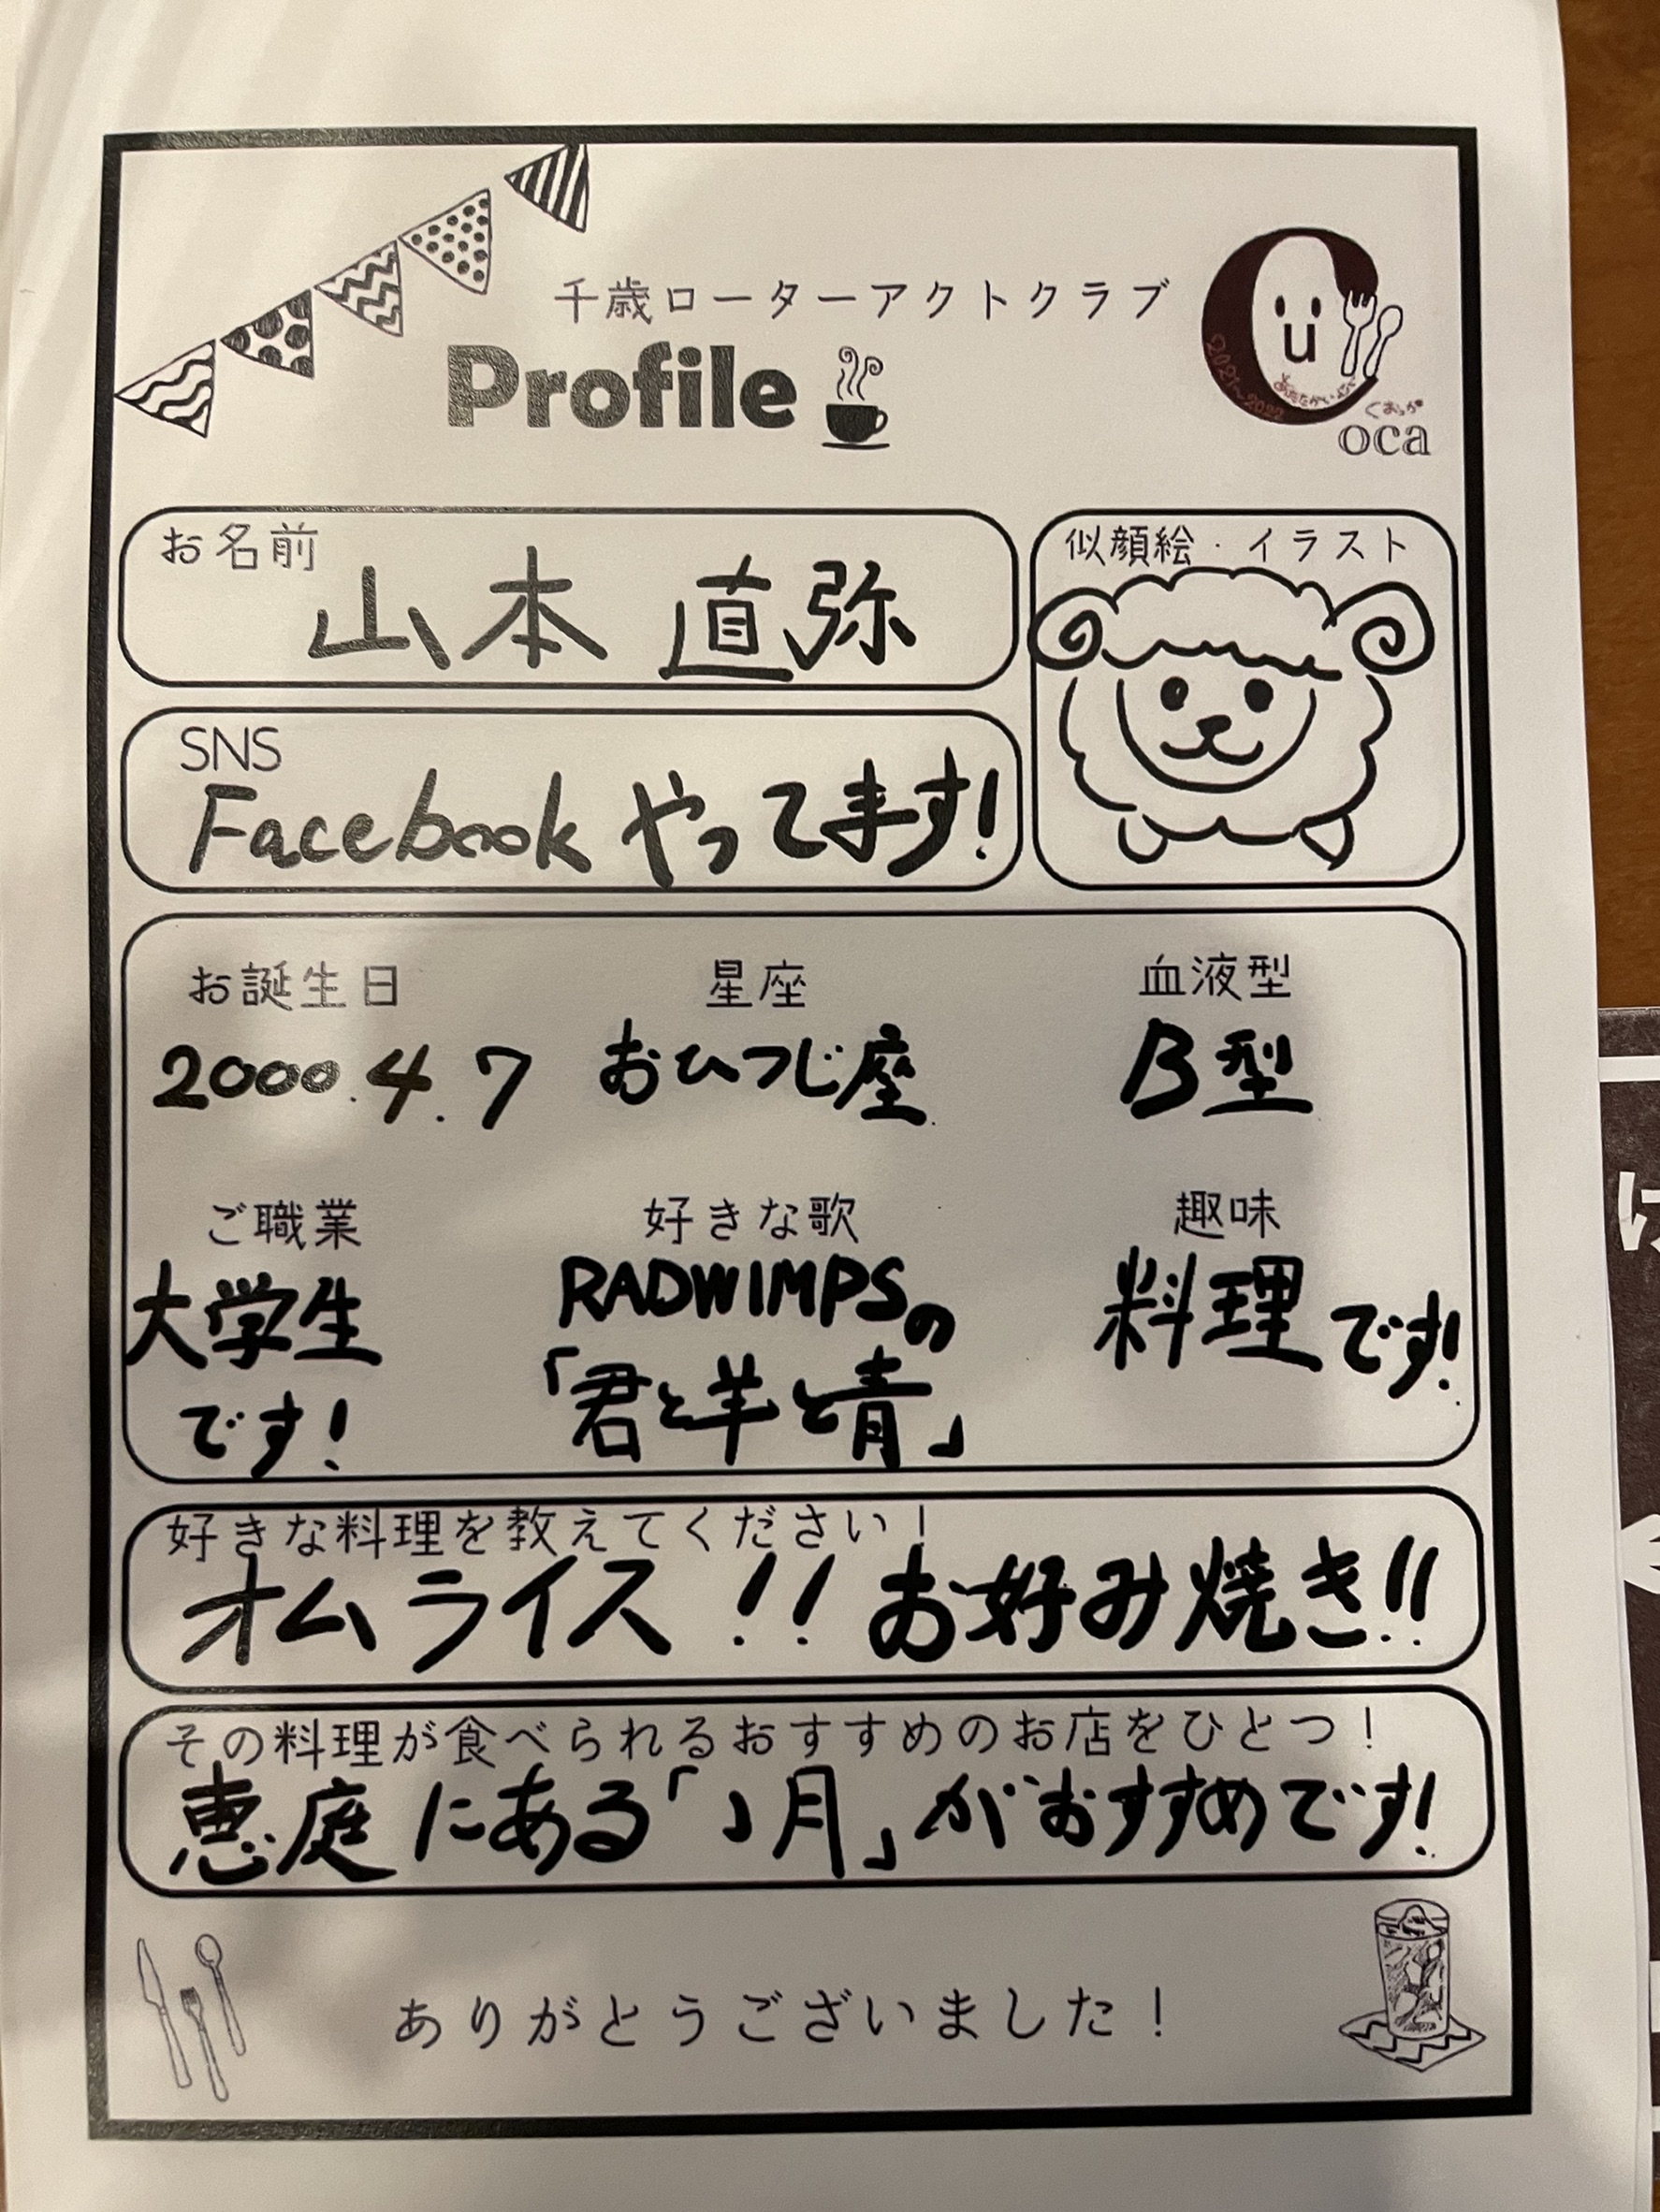 千歳ローターアクトクラブ
Profile
u
2021~2022
くおっか
oca
お名前
山本 直弥
似顔絵・イラスト
SNS
Facebook やってます!
お誕生日 星座 血液型
2000.4.7 おひつじ座 B型
ご職業 好きな歌 趣味
大学生 RADWIMPSの 料理です!
です! 「君と羊と青」
好きな料理を教えてください!
オムライス!! お好み焼き!!
その料理が食べられるおすすめのお店をひとつ!
恵庭にある「 月」がおすすめです!
ありがとうございました!